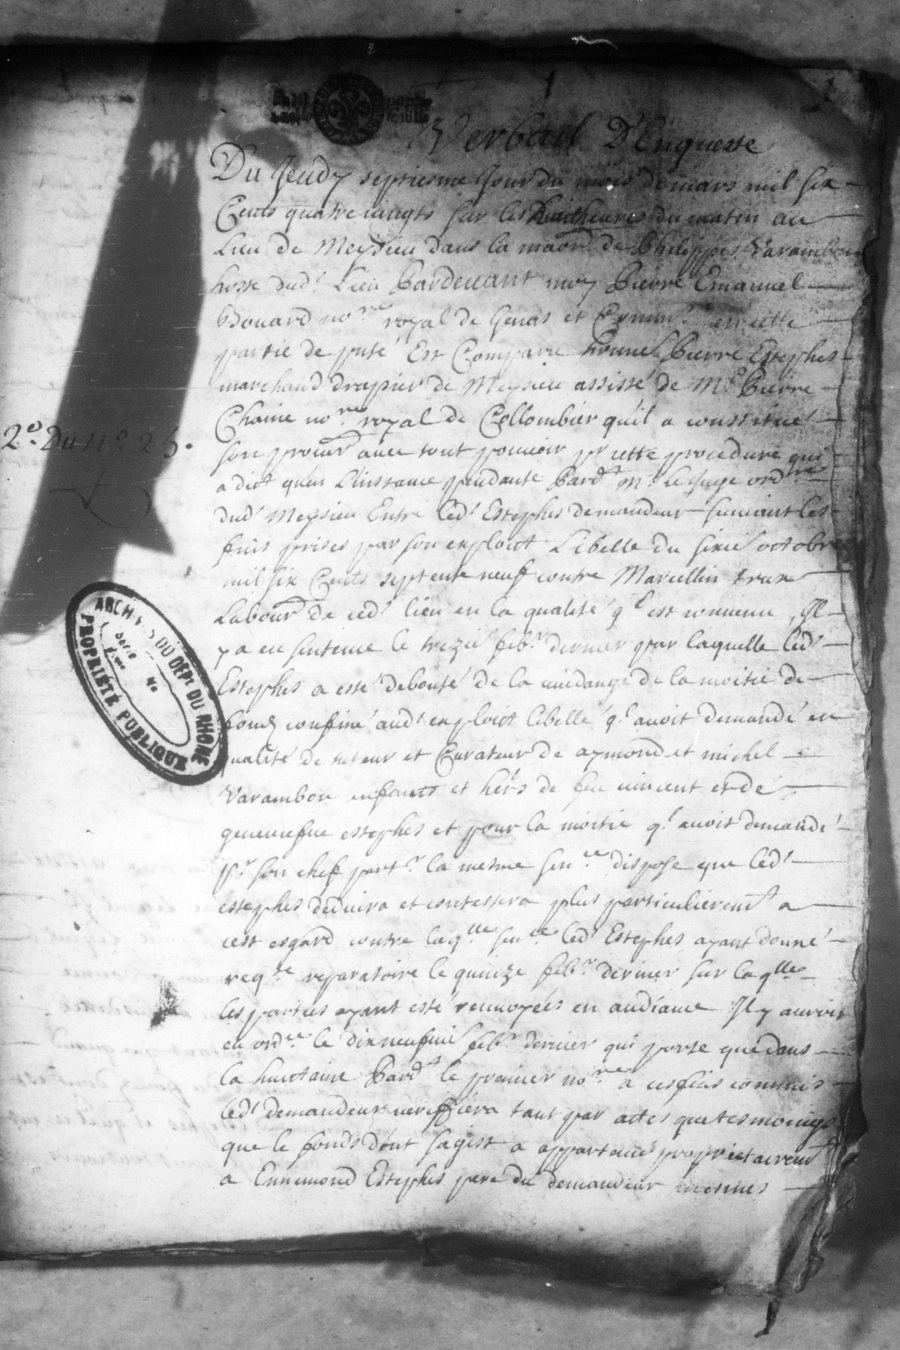 Verbail D'Enqueste
Du Jeudy septiesme Jour du mois de mars mil six
Cents quatre vingts sur les huict heures du matin au
Lieu de Meysieu dans la maon de Philippes Varambon
hoste dud. Lieu Pardevant moy Pierre Emanuel
bdouard nore royal de Genas et Commre en cette
partie de puté Est Comparu honnel Pierre Estephes
marchand drapier de Meysieu assisté de Me Pierre
Chaine nore royal de Collombier qu'il a constitué
son procur avec tout pouvoir pr cette procedure qui
a dict qu'en L'instance pendante Pardt Mr Le Juge ordre
dud. Meysieu Entre led. Estephes demandeur suivant les
fins prises par son exploict Libellé du sixie octobre
mil six Cents septente neuf contre Marcellin
Labour de ced. lieu en la qualité ql est convenu, Il
y a eu sentence le trezie febr dernier par laquelle led.
Estephes a esté debouté de la vuidange de la moitié de
fonds confiné aud. exploict libellé ql avoit demandé en
qualité de tuteur et Curateur de aymond et michel
Varambon enfants et hers de feu vincent et de
genevefve estephes et pour la moitié ql avoit demandé
pr son chef part. la mesme sence dispose que led.
estephes deduira et contestera plus particulieremt a
cest esgard contre laqlle sence led. Estephes ayant donné
reqte reparatoire le quinze febr dernier sur laqlle
les parties ayant esté renvoyées en audiance Il y auroit
eu ordce le dixneufvie febr dernier qui porte que dans
la huictaine Pardt le premier nore a ces fins commis
led. demandeur veriffiera tant par actes que tesmoings
que le fonds dont sagist a appartenu proprietairemt
a Ennemond Estephes pere du demandeur
2e. Du no. 25.
ARCH. DU DÉPt DU RHÔNE
PROPRIÉTÉ PUBLIQUE
Série
No